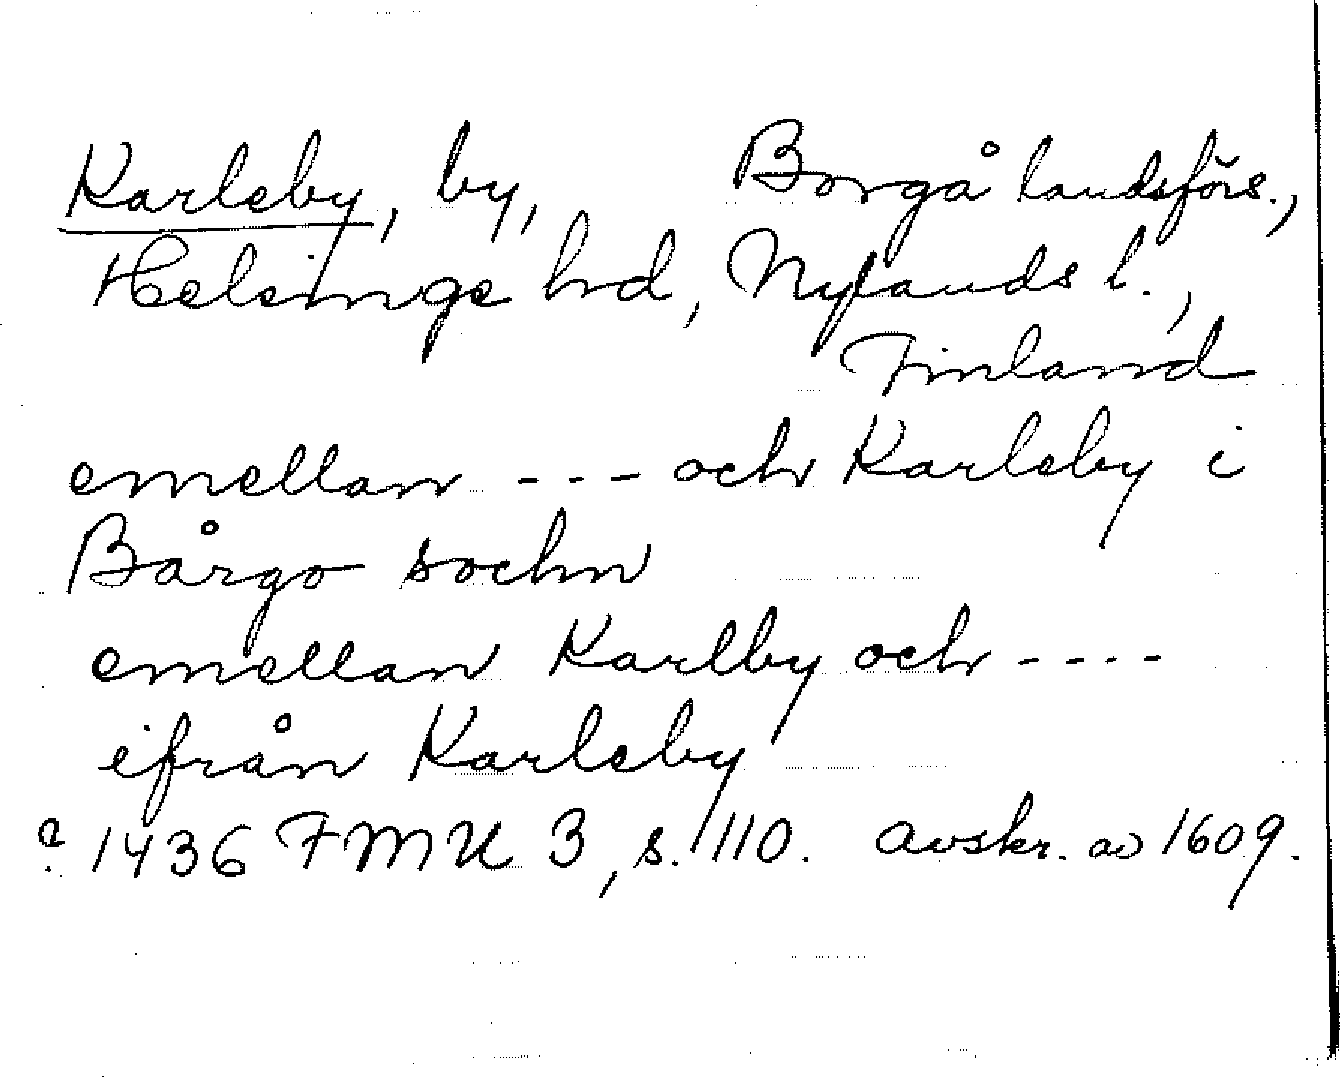 Karlsby, by, Borgå landsförs.,
Helsinge hd, Nylands l.,
Finland
emellan --- och Karlsby i
Bårgo sochn
emellan Karlby och ----
ifrån Karlsby
? 1436 FMU 3, s. 110. Avskr. av 1609.